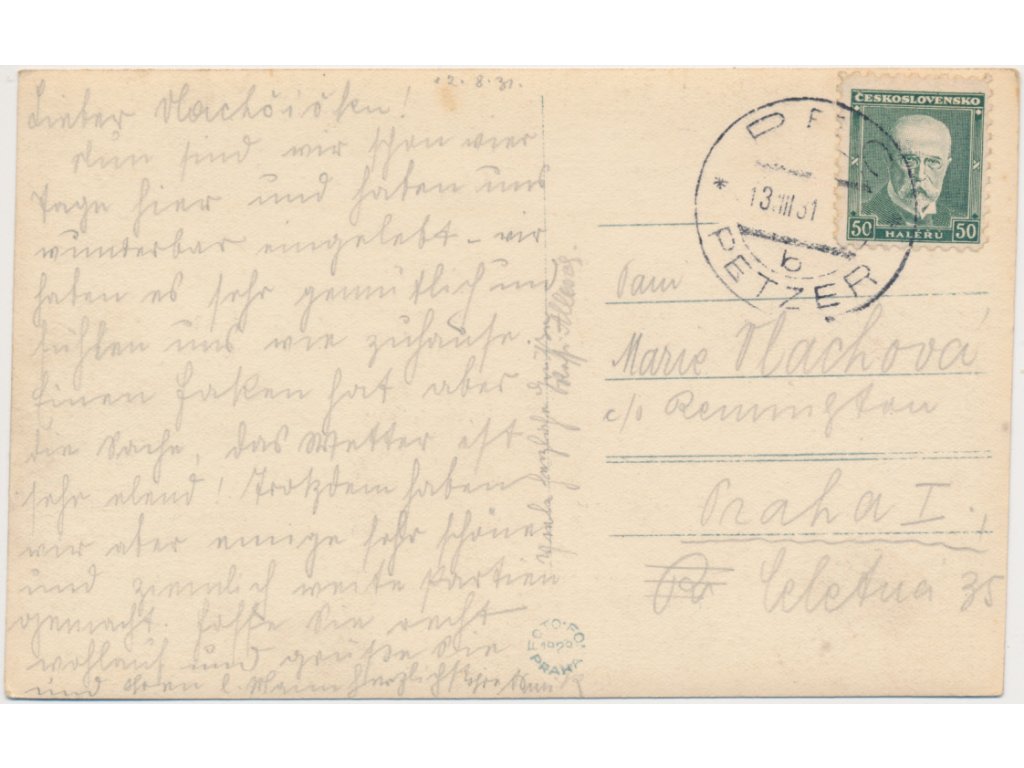 12.8.31.
Lieber Vlachöiöken!
Nun sind wir schon vier
Tage hier und haben uns
wunderbar eingelebt – wir
haben es sehr gemütlich und
fühlen uns wie zuhause.
Einen Haken hat aber
die Sache, das Wetter ist
sehr elend! Trotzdem haben
wir aber einige sehr schöne
und ziemlich weite Partien
gemacht. Hoffe Sie recht
wohlauf und grüße Sie
und Ihren l. Mann herzlichst Ihre
Viele herzliche Grüße
ČESKOSLOVENSKO
50 HALÉŘŮ 50
13.VIII 31
b
PETZER
Pam
Marie Vlachová
c/o Remington
Praha I.,
Celetná 35
FOTO-FO
PRAHA